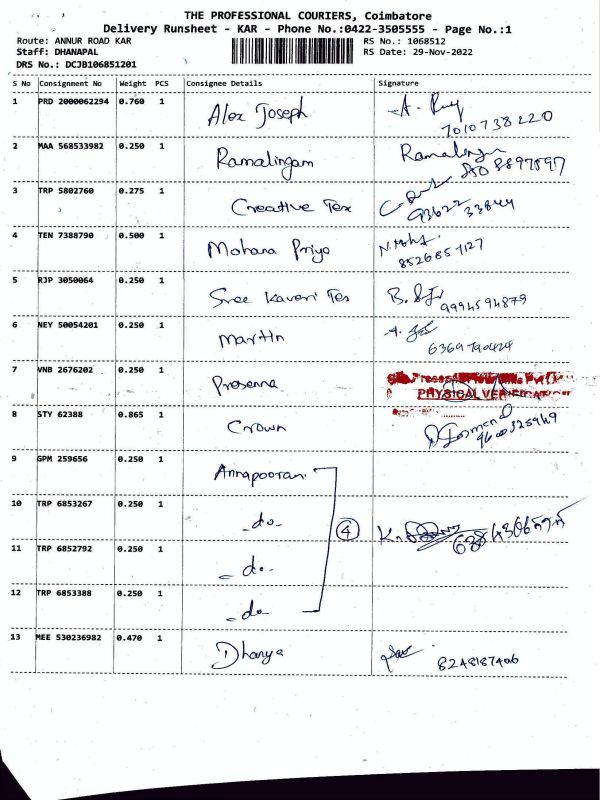 THE PROFESSIONAL COURIERS, Coimbatore
Delivery Runsheet - KAR - Phone No.:0422-3505555 - Page No.:1
Route: ANNUR ROAD KAR RS No.: 1068512
Staff: DHANAPAL RS Date: 29-Nov-2022
DRS No.: DCJB106851201
S No Consignment No Weight PCS Consignee Details Signature
1 PRD 2000062294 0.760 1 Alex Joseph
7010738220
2 MAA 568533982 0.250 1 Ramalingam Ramalingam
3 TRP 5802760 0.275 1 Creative Tex
93622 33844
4 TEN 7388790 0.500 1 Mohana Priya
8526857127
5 RJP 3050064 0.250 1 Sree Kaveri Tex
9994594879
6 NEY 50054201 0.250 1 Martin
7 VNB 2676202 0.250 1 Prasanna
PHYSICAL VERIFICATION
8 STY 62388 0.865 1 Crown
9600325949
9 GPM 259656 0.250 1 Annapoorani
10 TRP 6853267 0.250 1 -do- 4
11 TRP 6852792 0.250 1 -do-
12 TRP 6853388 0.250 1 -do-
13 MEE 530236982 0.470 1 Dhanya
8248187406